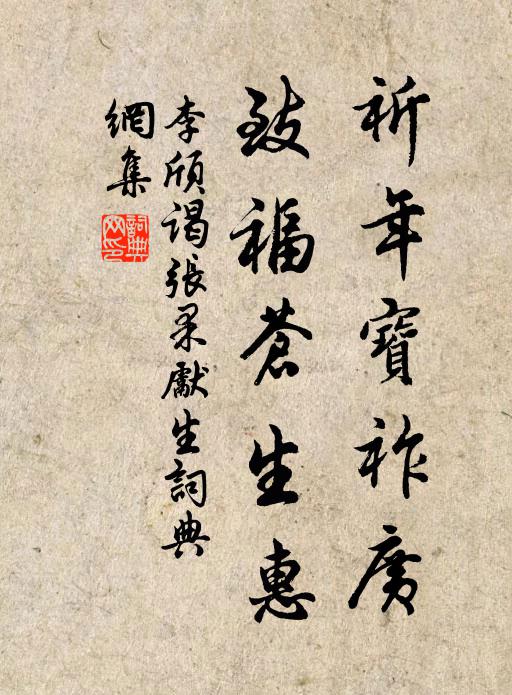 祈年寶祚廣
致福蒼生惠
李頎謁張果獻生詞典
網集
詞典
网印